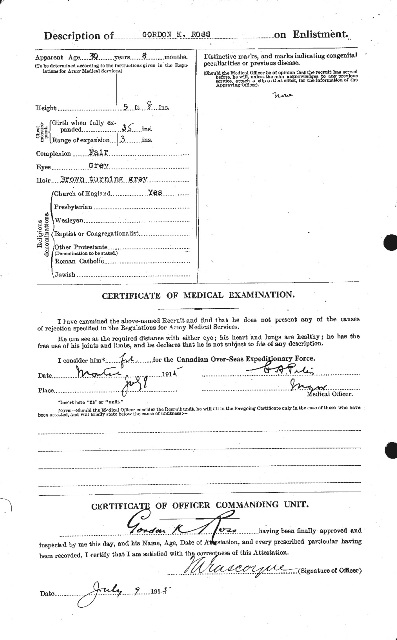 Description of GORDON K. ROSS on Enlistment.
Apparent Age 39 years 8 months
(To be determined according to the instructions given in the Regulations for Army Medical Services)
Distinctive marks, and marks indicating congenital
peculiarities or previous disease.
(Should the Medical Officer be of opinion that the recruit has served
before, he will, unless the man acknowledges to any previous
service, attach a slip to that effect, for the information of the
Approving Officer).
None
Height 5 ft. 8 ins.
Girth when fully expanded 35 ins
Range of expansion 3 ins.
Complexion Fair
Eyes Grey
Hair Brown turning grey
Religious denominations
Church of England Yes
Presbyterian
Wesleyan
Baptist or Congregationalist
Other Protestants
(Denomination to be stated.)
Roman Catholic
Jewish
CERTIFICATE OF MEDICAL EXAMINATION.
I have examined the above-named Recruit and find that he does not present any of the causes
of rejection specified in the Regulations for Army Medical Services.
He can see at the required distance with either eye; his heart and lungs are healthy; he has the
free use of his joints and limbs, and he declares that he is not subject to fits of any description.
I consider him* fit for the Canadian Over-Seas Expeditionary Force.
Date 1915
Place July 8
Medical Officer.
*Insert here "fit" or "unfit."
NOTE.—Should the Medical Officer consider the Recruit unfit, he will fill in the foregoing Certificate only in the case of those who have
been attested, and will briefly state below the cause of unfitness:—
CERTIFICATE OF OFFICER COMMANDING UNIT.
Gordon K Ross having been finally approved and
inspected by me this day, and his Name, Age, Date of Attestation, and every prescribed particular having
been recorded, I certify that I am satisfied with the correctness of this Attestation.
(Signature of Officer)
Date July 9 1915